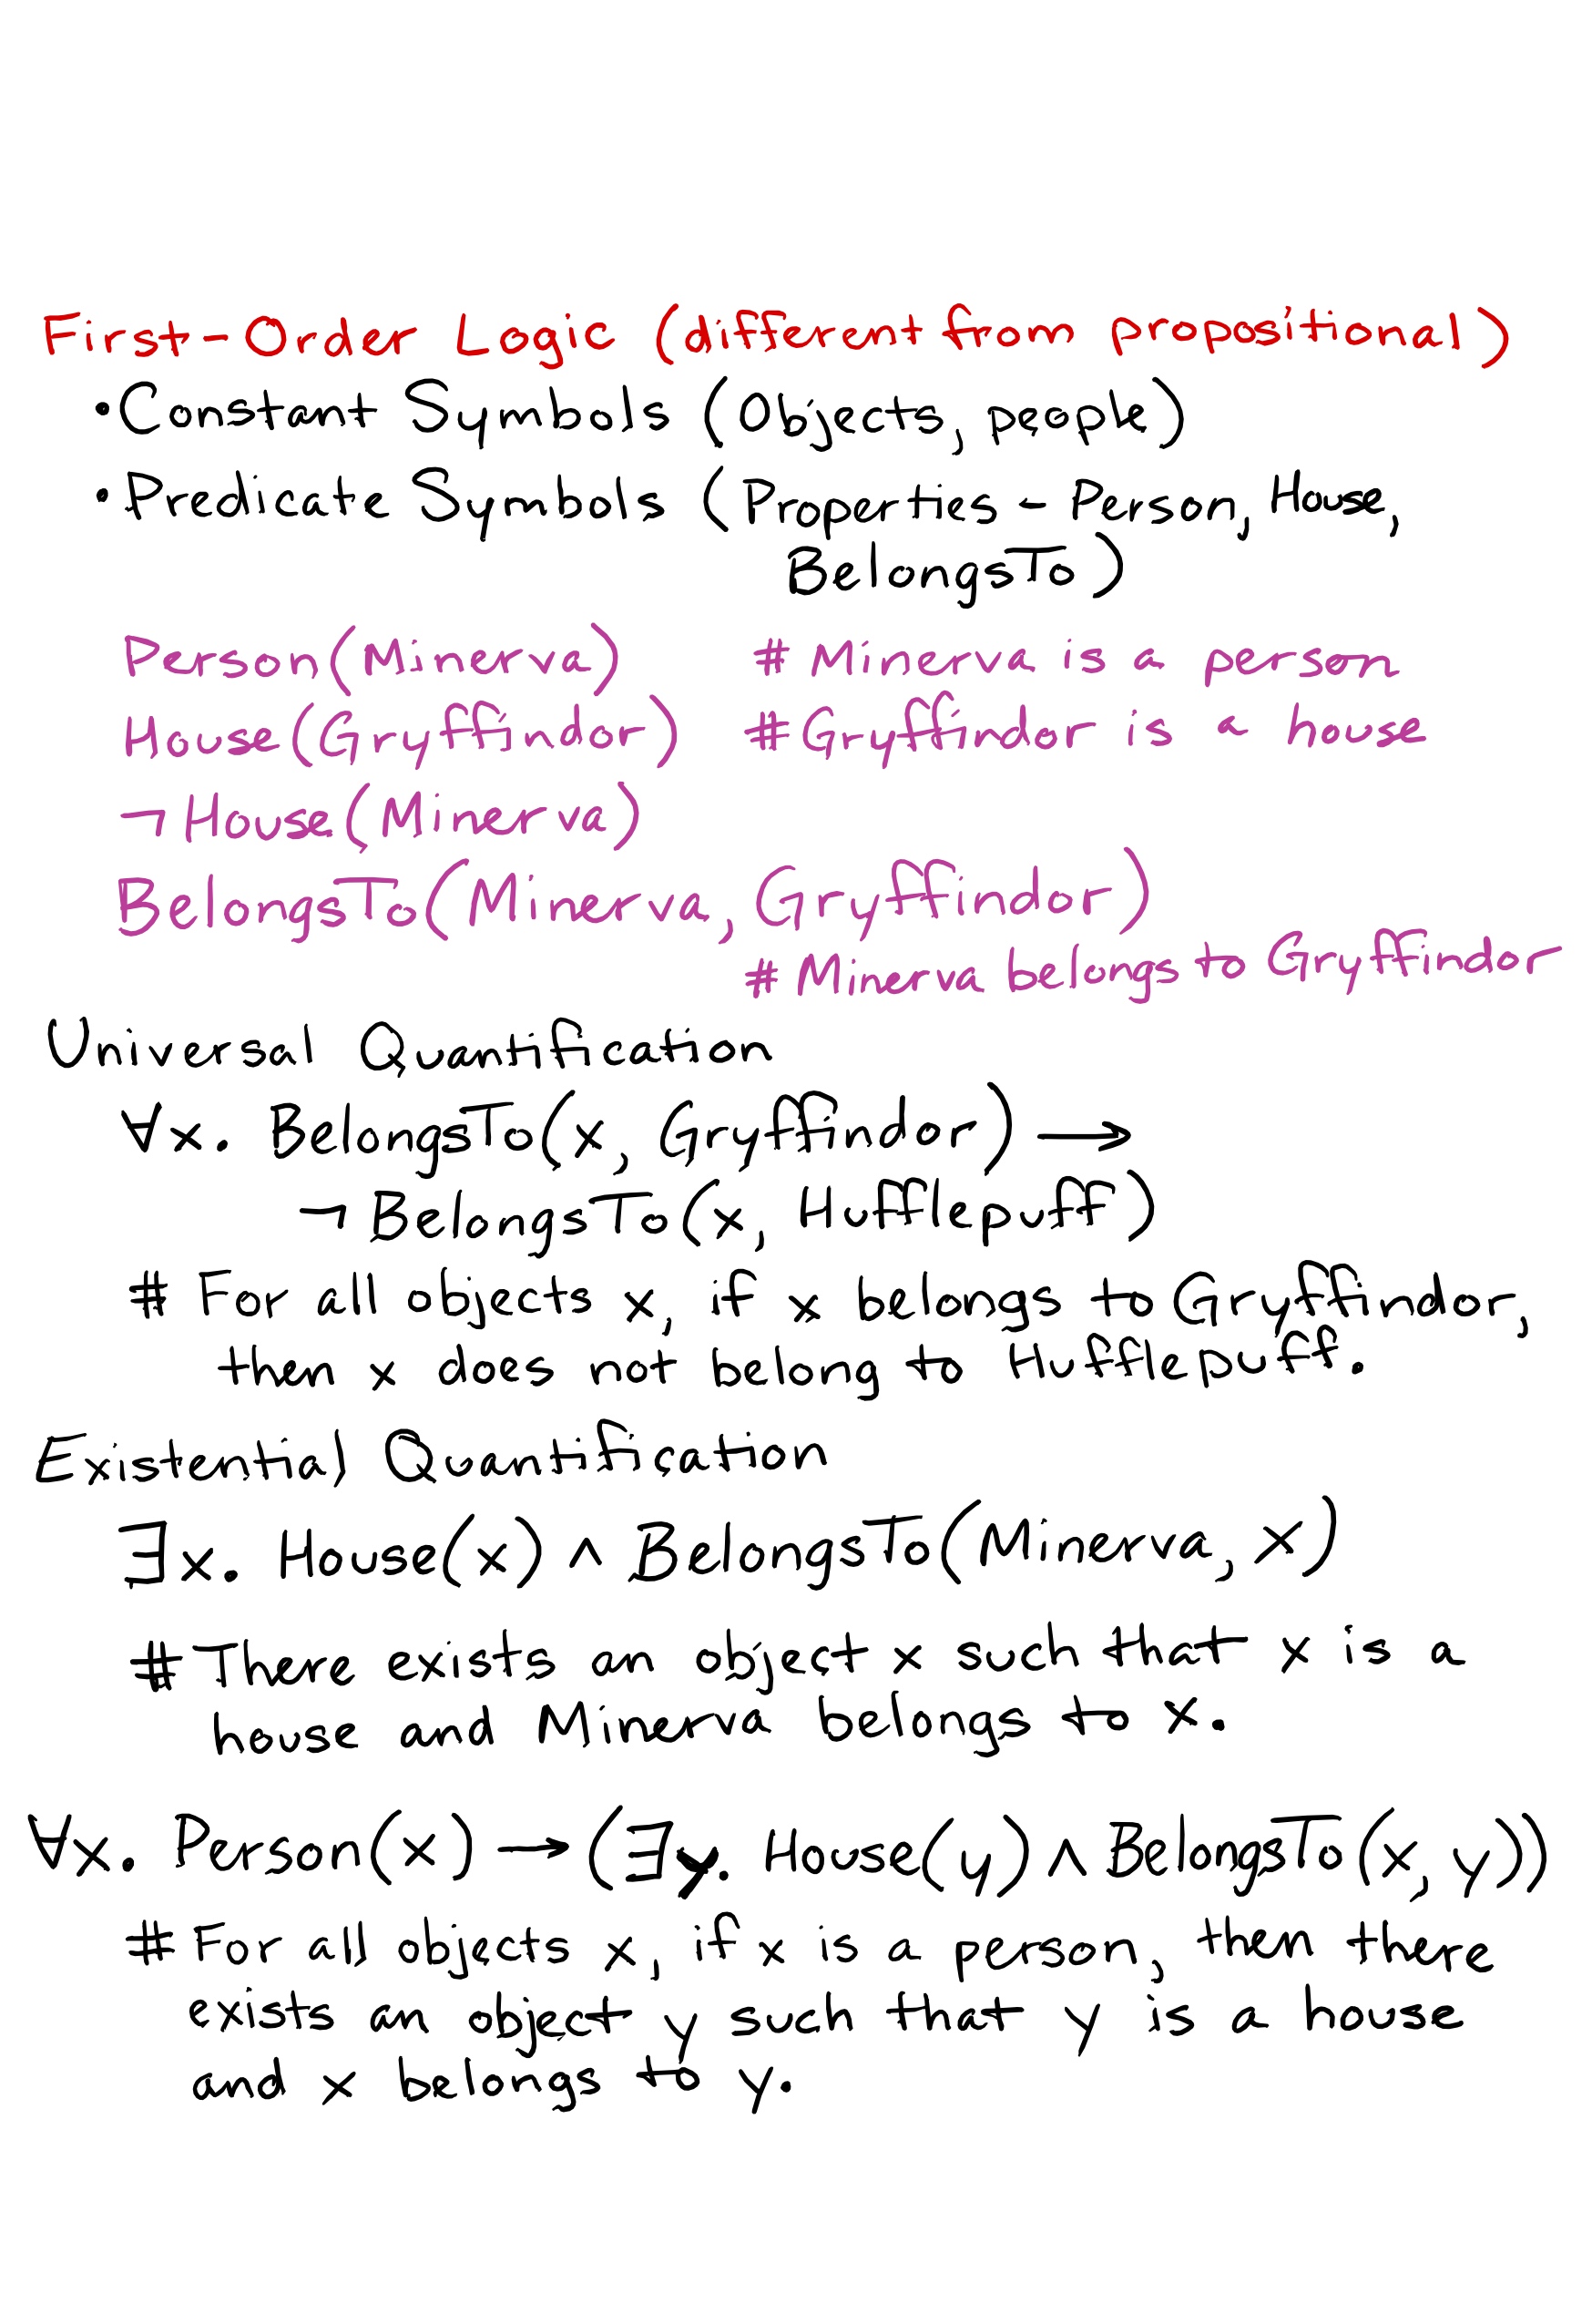 First-Order Logic (different from propositional)
• Constant Symbols (Objects, people)
• Predicate Symbols (Properties - Person, House,
BelongsTo)
Person(Minerva) #Minerva is a person
House(Gryffindor) #Gryffindor is a house
¬House(Minerva)
BelongsTo(Minerva, Gryffindor)
#Minerva belongs to Gryffindor
Universal Quantification
∀x. BelongsTo(x, Gryffindor) →
¬BelongsTo(x, Hufflepuff)
# For all objects x, if x belongs to Gryffindor,
then x does not belong to Hufflepuff.
Existential Quantification
∃x. House(x) ∧ BelongsTo(Minerva, x)
# There exists an object x such that x is a
house and Minerva belongs to x.
∀x. Person(x) → (∃y. House(y) ∧ BelongsTo(x, y))
# For all objects x, if x is a person, then there
exists an object y such that y is a house
and x belongs to y.